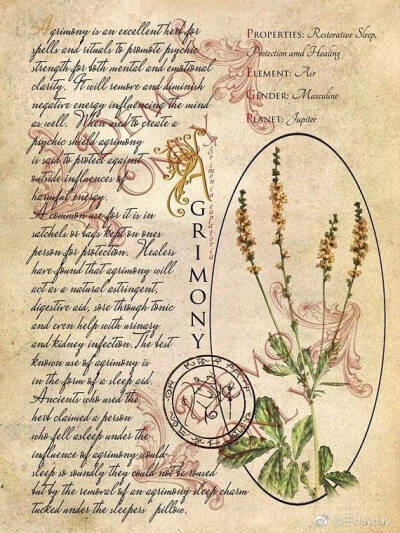 Agrimony is an excellent herb for
spells and rituals to promote psychic
strength for both mental and emotional
clarity. It will remove and diminish
negative energy influencing the mind
as well. When used to create a
psychic shield agrimony
is said to protect against
outside influences of
harmful energy.
A common use for it is in
satchels or bags kept on ones
person for protection. Healers
have found that agrimony will
act as a natural astringent,
digestive aid, sore through tonic
and even help with urinary
and kidney infection. The best
known use of agrimony is
in the form of a sleep aid.
Ancients who used the
herb claimed a person
who fell asleep under the
influence of agrimony would
sleep so soundly they could not be roused
but by the removal of an agrimony sleep charm
tucked under the sleepers' pillow.
Properties: Restorative Sleep,
Protection amd Healing
Element: Air
Gender: Masculine
Planet: Jupiter
AGRIMONY
Agrimonia eupatoria
dayday